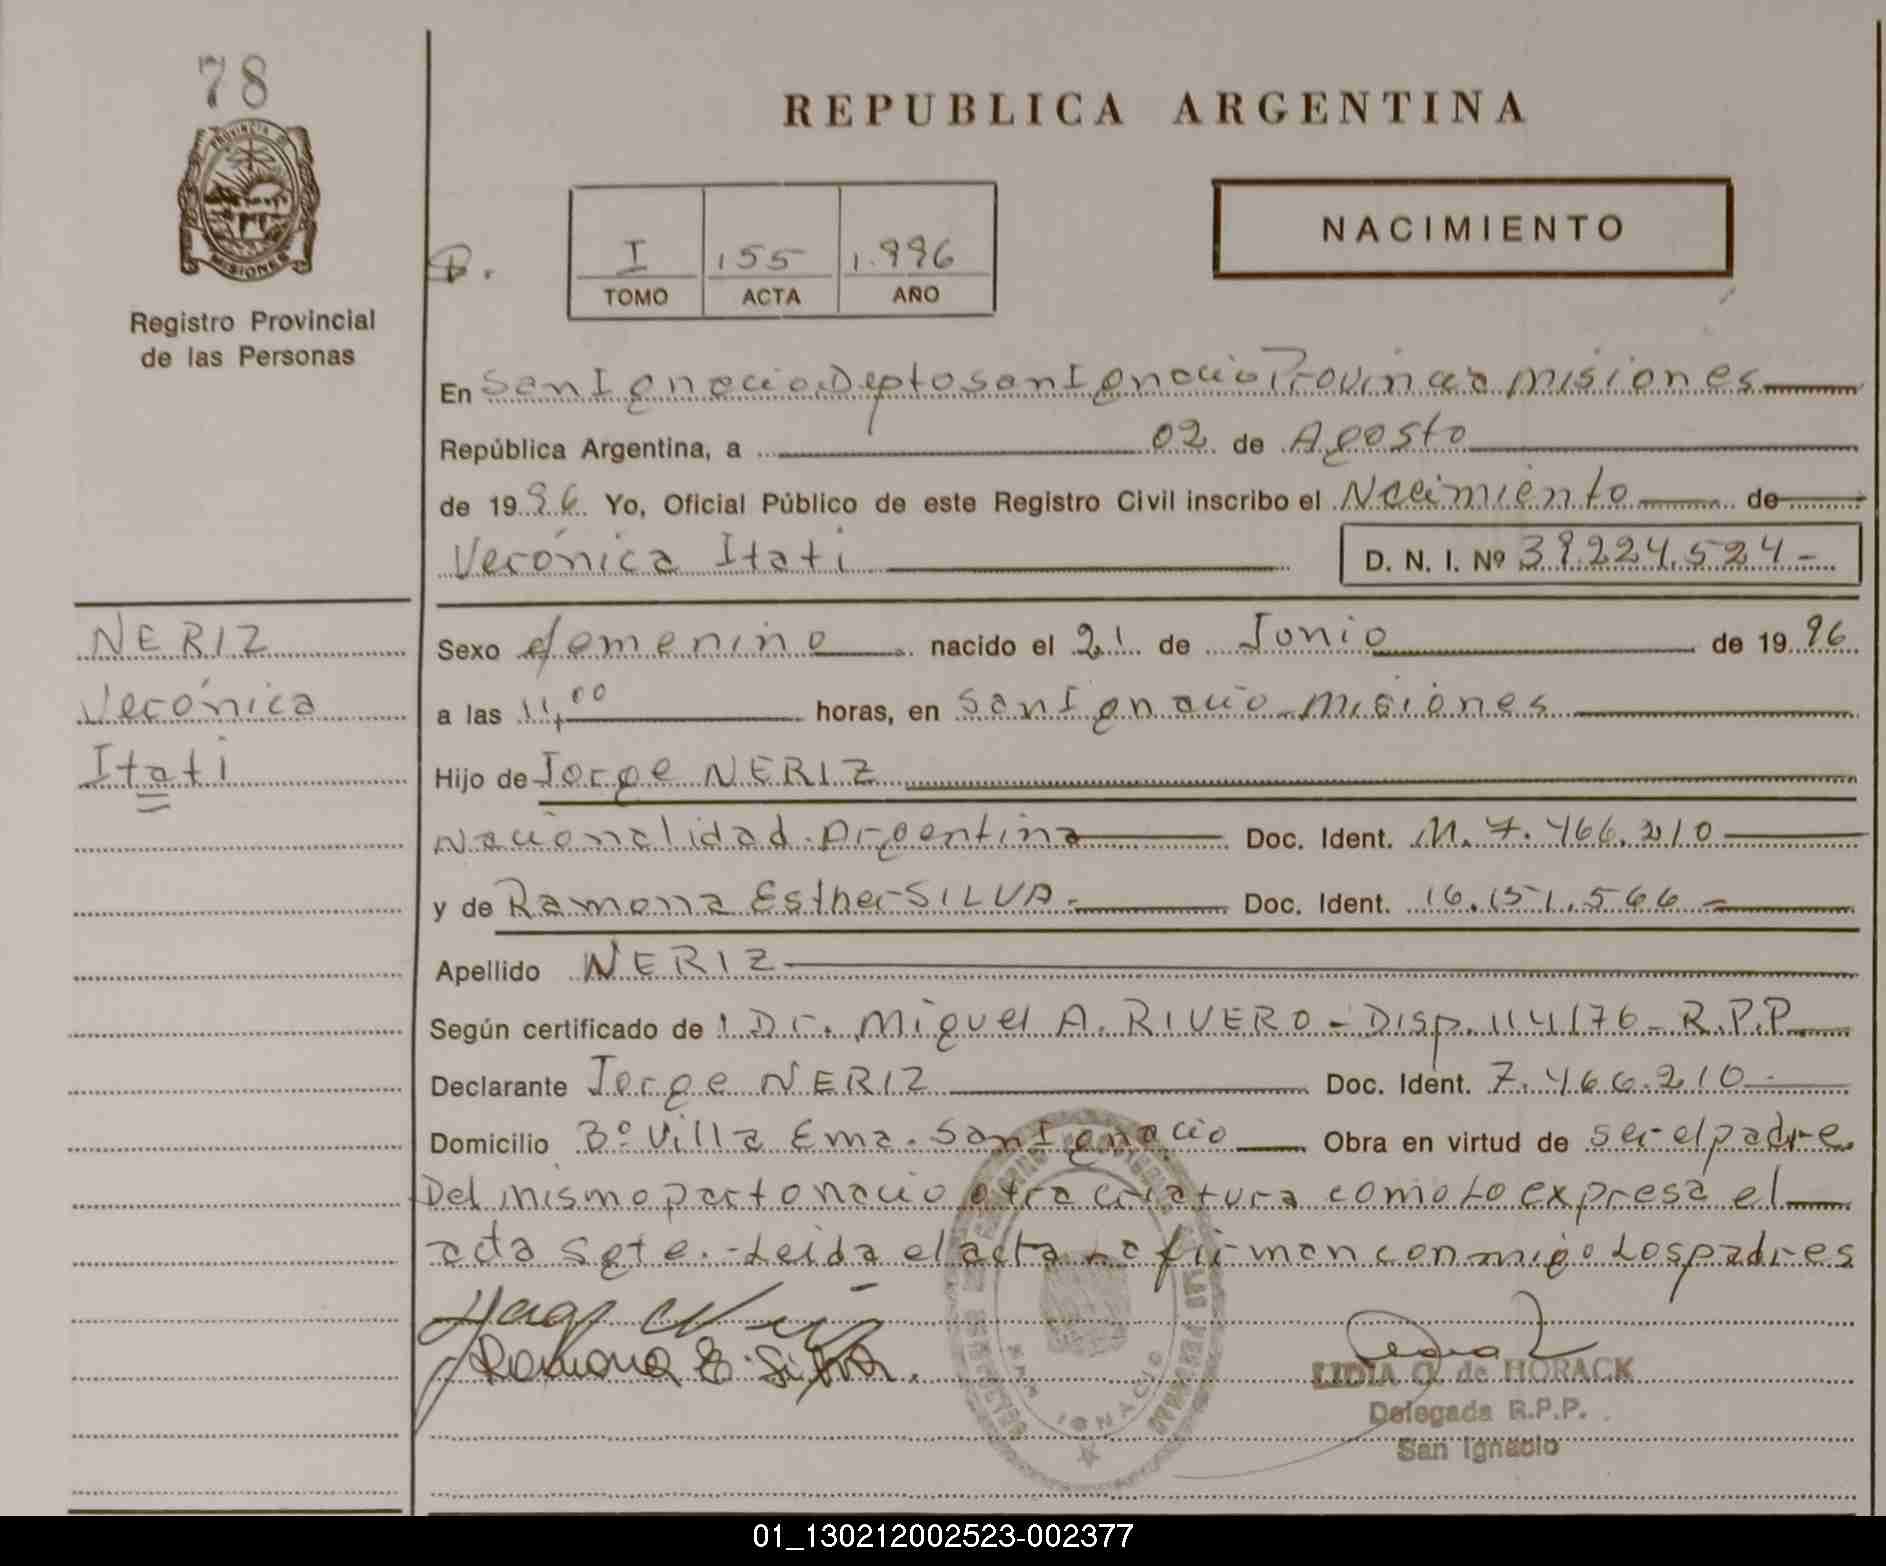 78
PROVINCIA DE
MISIONES
Registro Provincial
de las Personas
REPUBLICA ARGENTINA
NACIMIENTO
I 155 1.996
TOMO ACTA AÑO
En San Ignacio Depto San Ignacio Provincia misiones
República Argentina, a 02 de Agosto
de 1996 Yo, Oficial Público de este Registro Civil inscribo el Nacimiento de
Verónica Itati D. N. I. Nº 39.224.524-
NERIZ
Verónica
Itati
Sexo femenino nacido el 21 de Junio de 1996
a las 11,00 horas, en San Ignacio misiones
Hijo de Jorge NERIZ
Nacionalidad Argentina Doc. Ident. M.7.466.210
y de Ramona Esther SILVA.- Doc. Ident. 16.151.566
Apellido NERIZ
Según certificado de Dr. Miguel A. RIVERO - Disp. 114/76 - R.P.P
Declarante Jorge NERIZ Doc. Ident. 7.466.210
Domicilio Bº Villa Ema. San Ignacio Obra en virtud de ser el padre.
Del mismo parto nacio otra criatura como lo expresa el
acta sgte.- Leida el acta la firman conmigo los padres
Ramona E. Silva.
SAN IGNACIO
LIDIA O. de HORACK
Delegada R.P.P.
San Ignacio
01_130212002523-002377